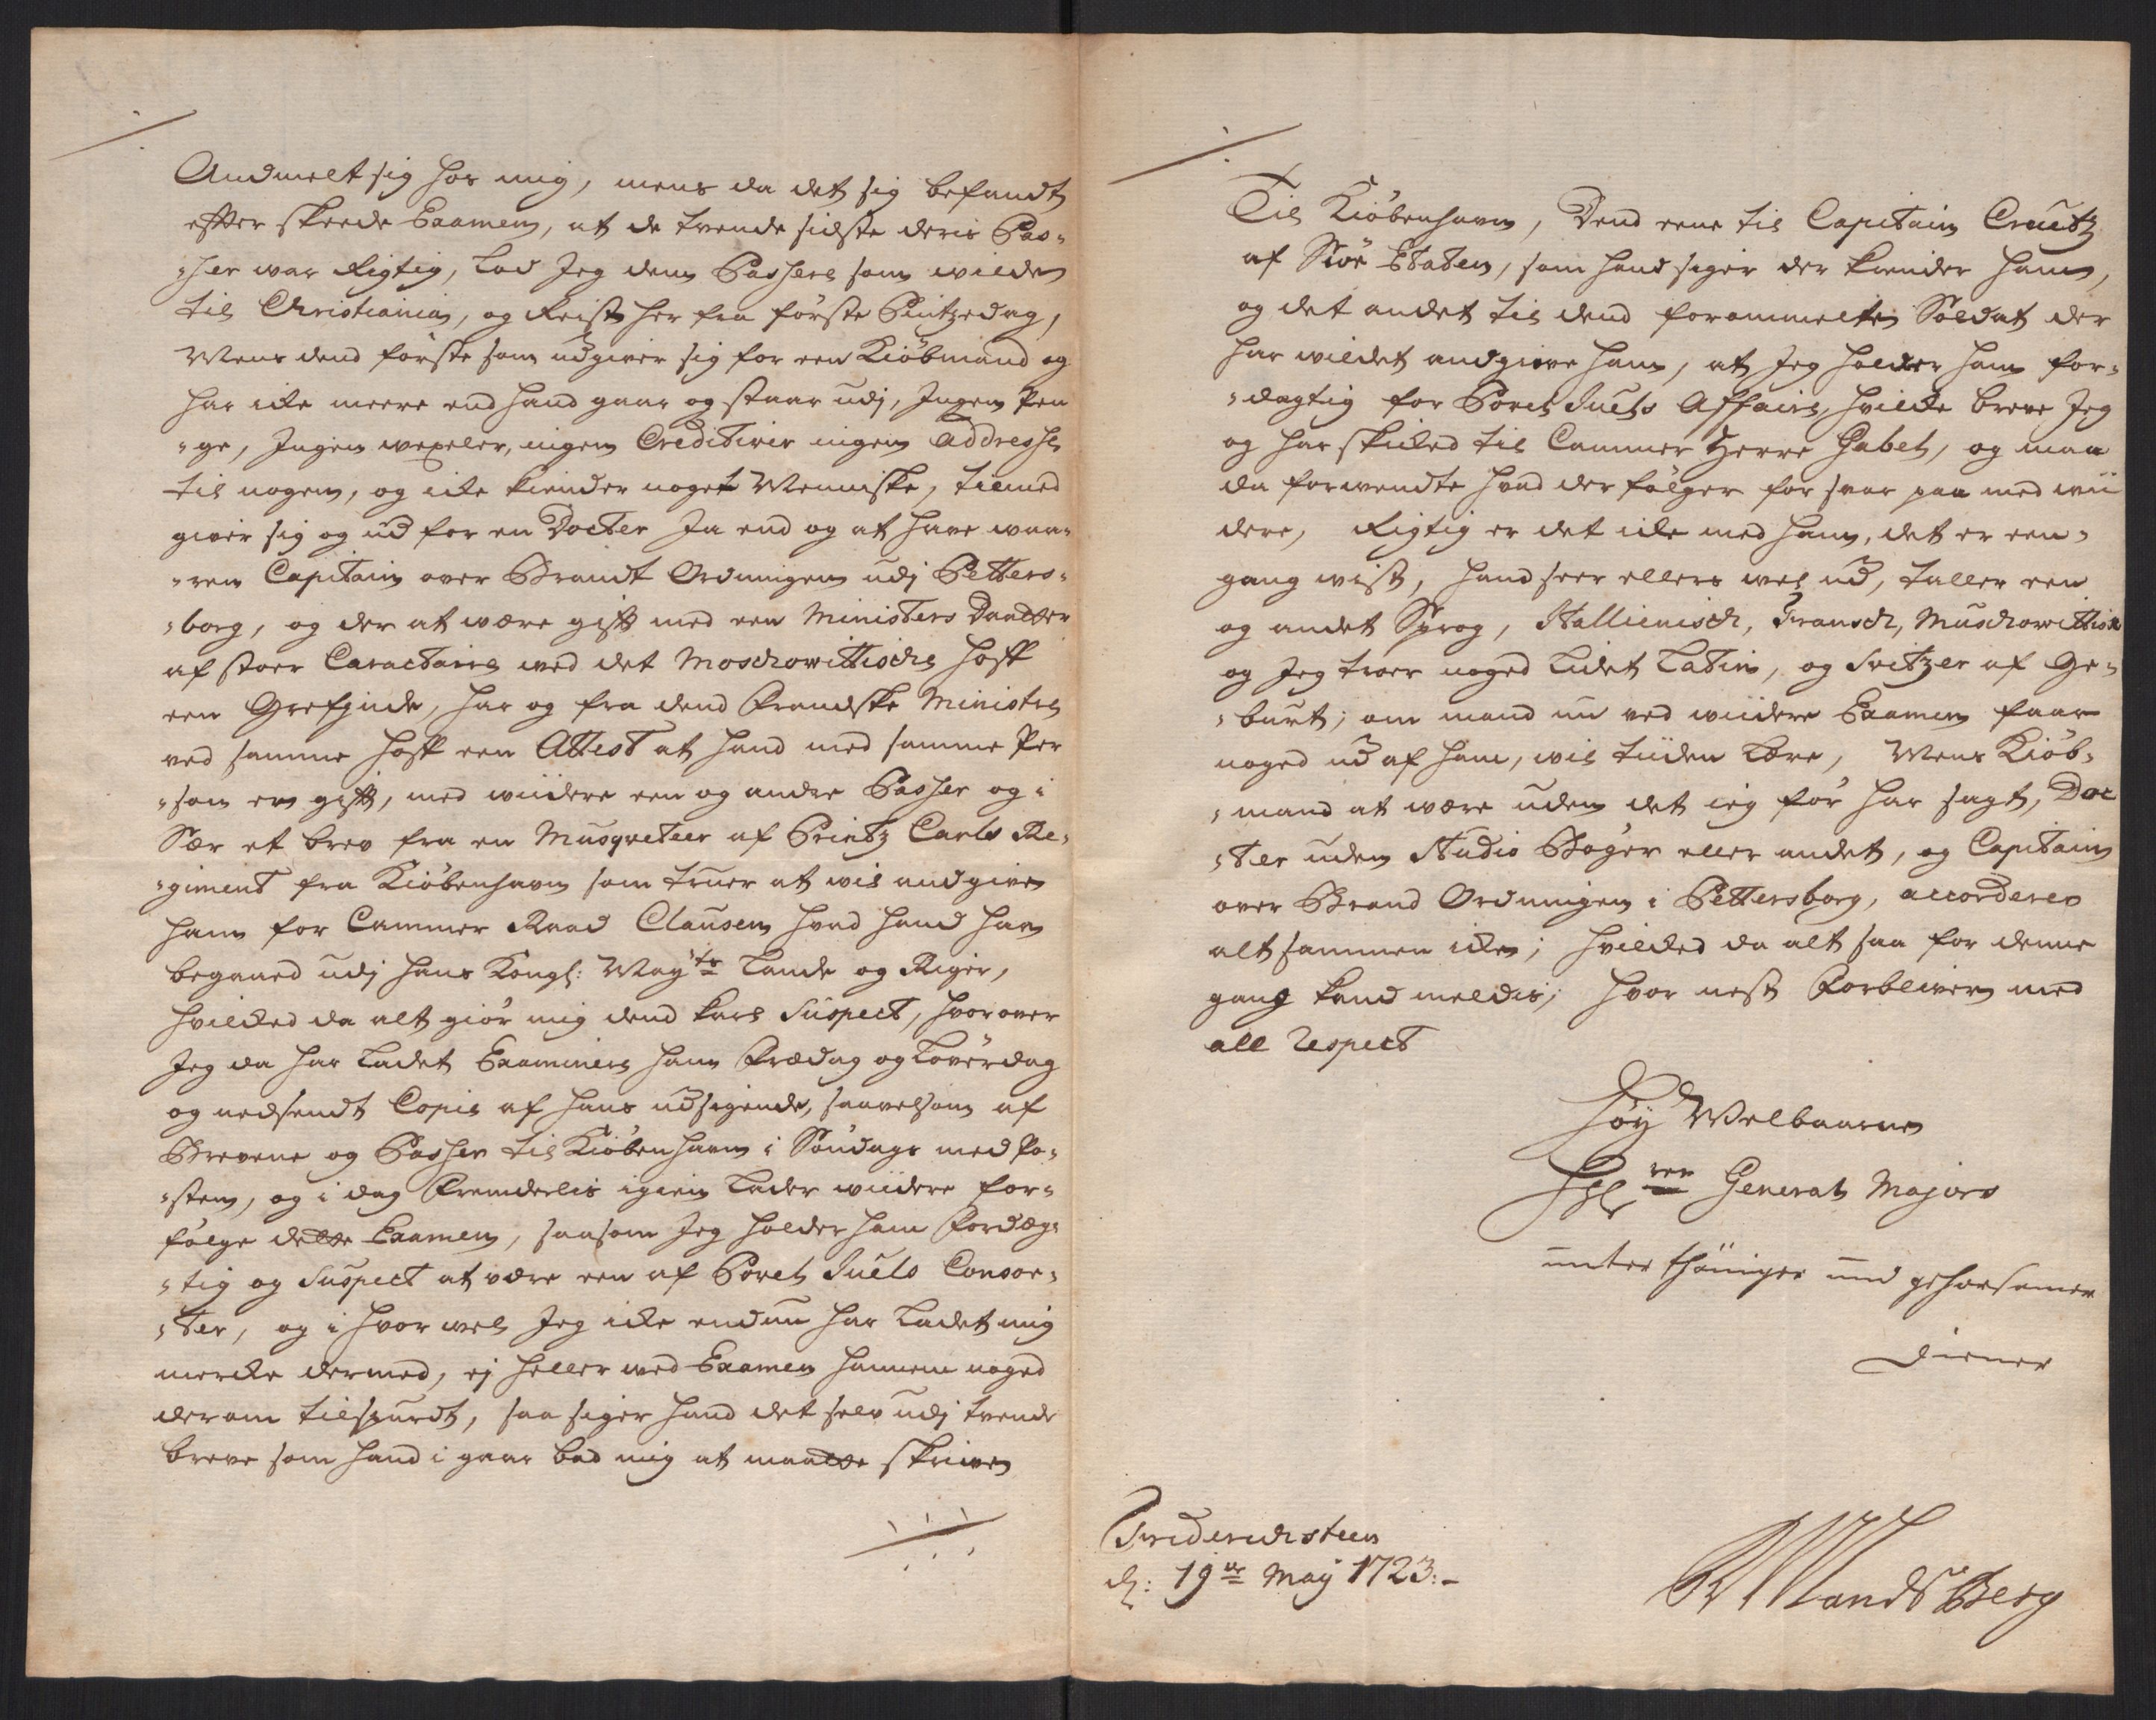 Andmelt sig hos mig, mens da det sig befandt
efter skeede Examen, at de tvende sidste deris Pas-
-ser war Rigtig, lod Jeg dem Passere som wilde
til Christiania, og Reiste her fra förste Pintzedag,
Mens dend förste som udgiver sig for een Kiöbmand og
har icke meere end hand gaar og staar udj, Ingen Pen
-ge, Ingen wexeler, ingen Creditiver ingen Addresse
til nogen, og icke kiender noget Menniske, tilmed
giver sig og ud for en Docter Ja end og at have waa-
-ren Capitain over Brandt Ordningen udj Petters-
-borg, og der at være gift med een Ministers Daatter
af stoer Caractaire wed det Moschowittische Hoff
een Grefginde, har og fra dend Frandske Ministre
ved samme Hoff een Attest at hand med samme Per
-son er gift, med wiidere een og andre Passer og i
Sær et brev fra en Musqveteer af Printz Carls Re-
-giment fra Kiöbenhavn som truer at wil andgive
ham for Cammer Raad Clausen hvad hand har
begaaed udj hans Kongl: May:ts Lande og Riger,
hvilcked da alt giör mig dend karl Suspect, hvorover
Jeg da har ladet Examinere ham Fredag og Löverdag
og nedsendt Copie af hans udsigende, saavelsom af
Brevene og Passer til Kiöbenhavn i Söndags med Po-
-sten, og i dag Fremdeelis igien lader wiidere for-
fölge dette Examen, saasom Jeg holder ham Fordæg-
-tig og Suspect at være een af Povel Juels Consor-
-ter, og i hvor wel Jeg icke endnu har ladet mig
mercke dermed, ej heller wed Examen hannem noged
derom tilspurdt, saa siger hand det selv udj tvende
breve som hand i gaar bad mig at maatte skrive
Til Kiöbenhavn, Dend eene til Capitain Creutz
af Söe Etaten, som hand siger der kiender ham,
og det andet til dend forommelte Soldat der
har wildet andgive ham, at Jeg holder ham for-
-dagtig for Povel Juels Affaire, hvilcke breve Jeg
og har skicked til Cammer Herre Gabel, og maa
da forwendte hvad der fölger for svar paa med wii
dere, Rigtig er det icke med ham, det er een-
gang wist, hand seer ellers wel ud, taller een
og andet Sprog, Itallienisch, Fransch, Muschowittisk
og Jeg troer noged lidet Latin, og Svitzer af Ge-
-burt; om mand nu ved wiidere Examen faar
noged ud af ham, wil tiiden lære, Mens Kiöb-
-mand at være uden det ieg för har sagt, Doc
-ter uden Studio Böger eller andet, og Capitain
over Brand Ordningen i Pettersborg, accorderer
alt sammen icke; hvilcked da alt saa for denne
gang kand meldis; hvor nest Forbliver med
all Respect
Höy Welbaarne
Hr General Majors
unterthäniger und gehorsamer
Diener
Fridrichsteen
d: 19de May 1723:-